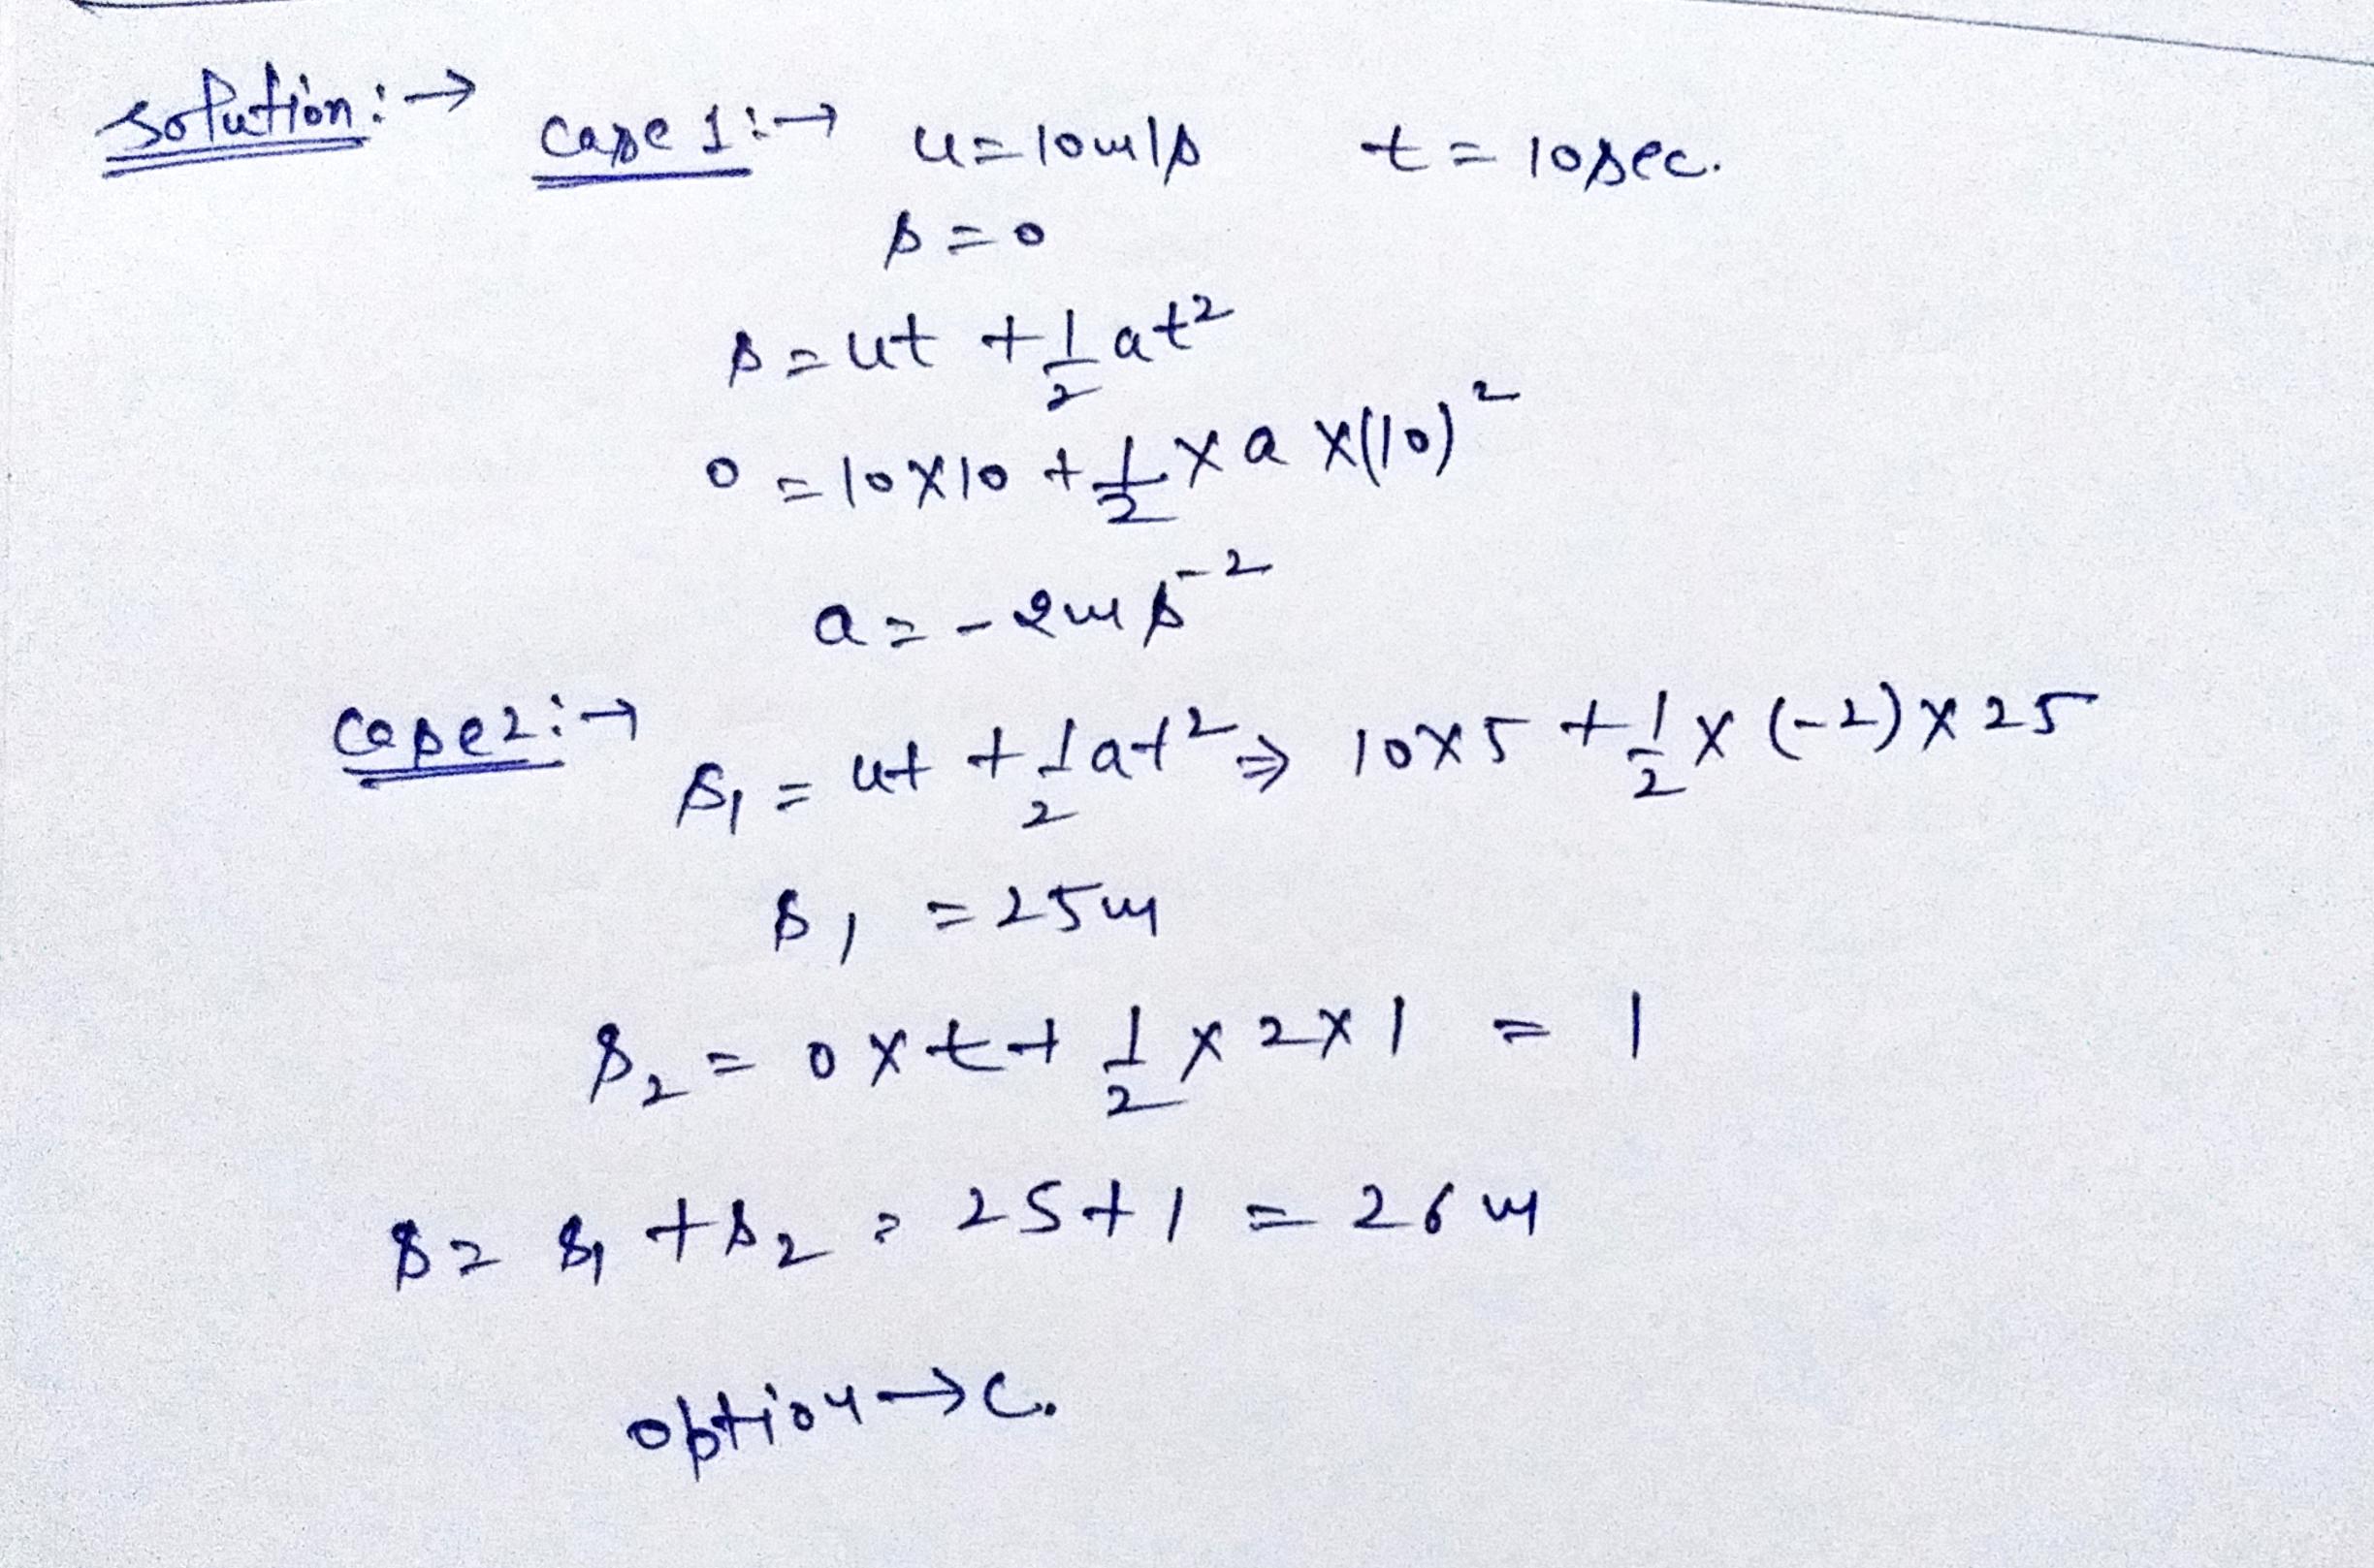 Solution:→ Case 1:→ u=10m/s t=10sec.
s=0
s=ut+½at²
0=10×10+½×a×(10)²
a=-2ms⁻²
Case2:→ s₁=ut+½at²⇒10×5+½×(-2)×25
s₁=25m
s₂=0×t+½×2×1=1
s=s₁+s₂=25+1=26m
option→C.